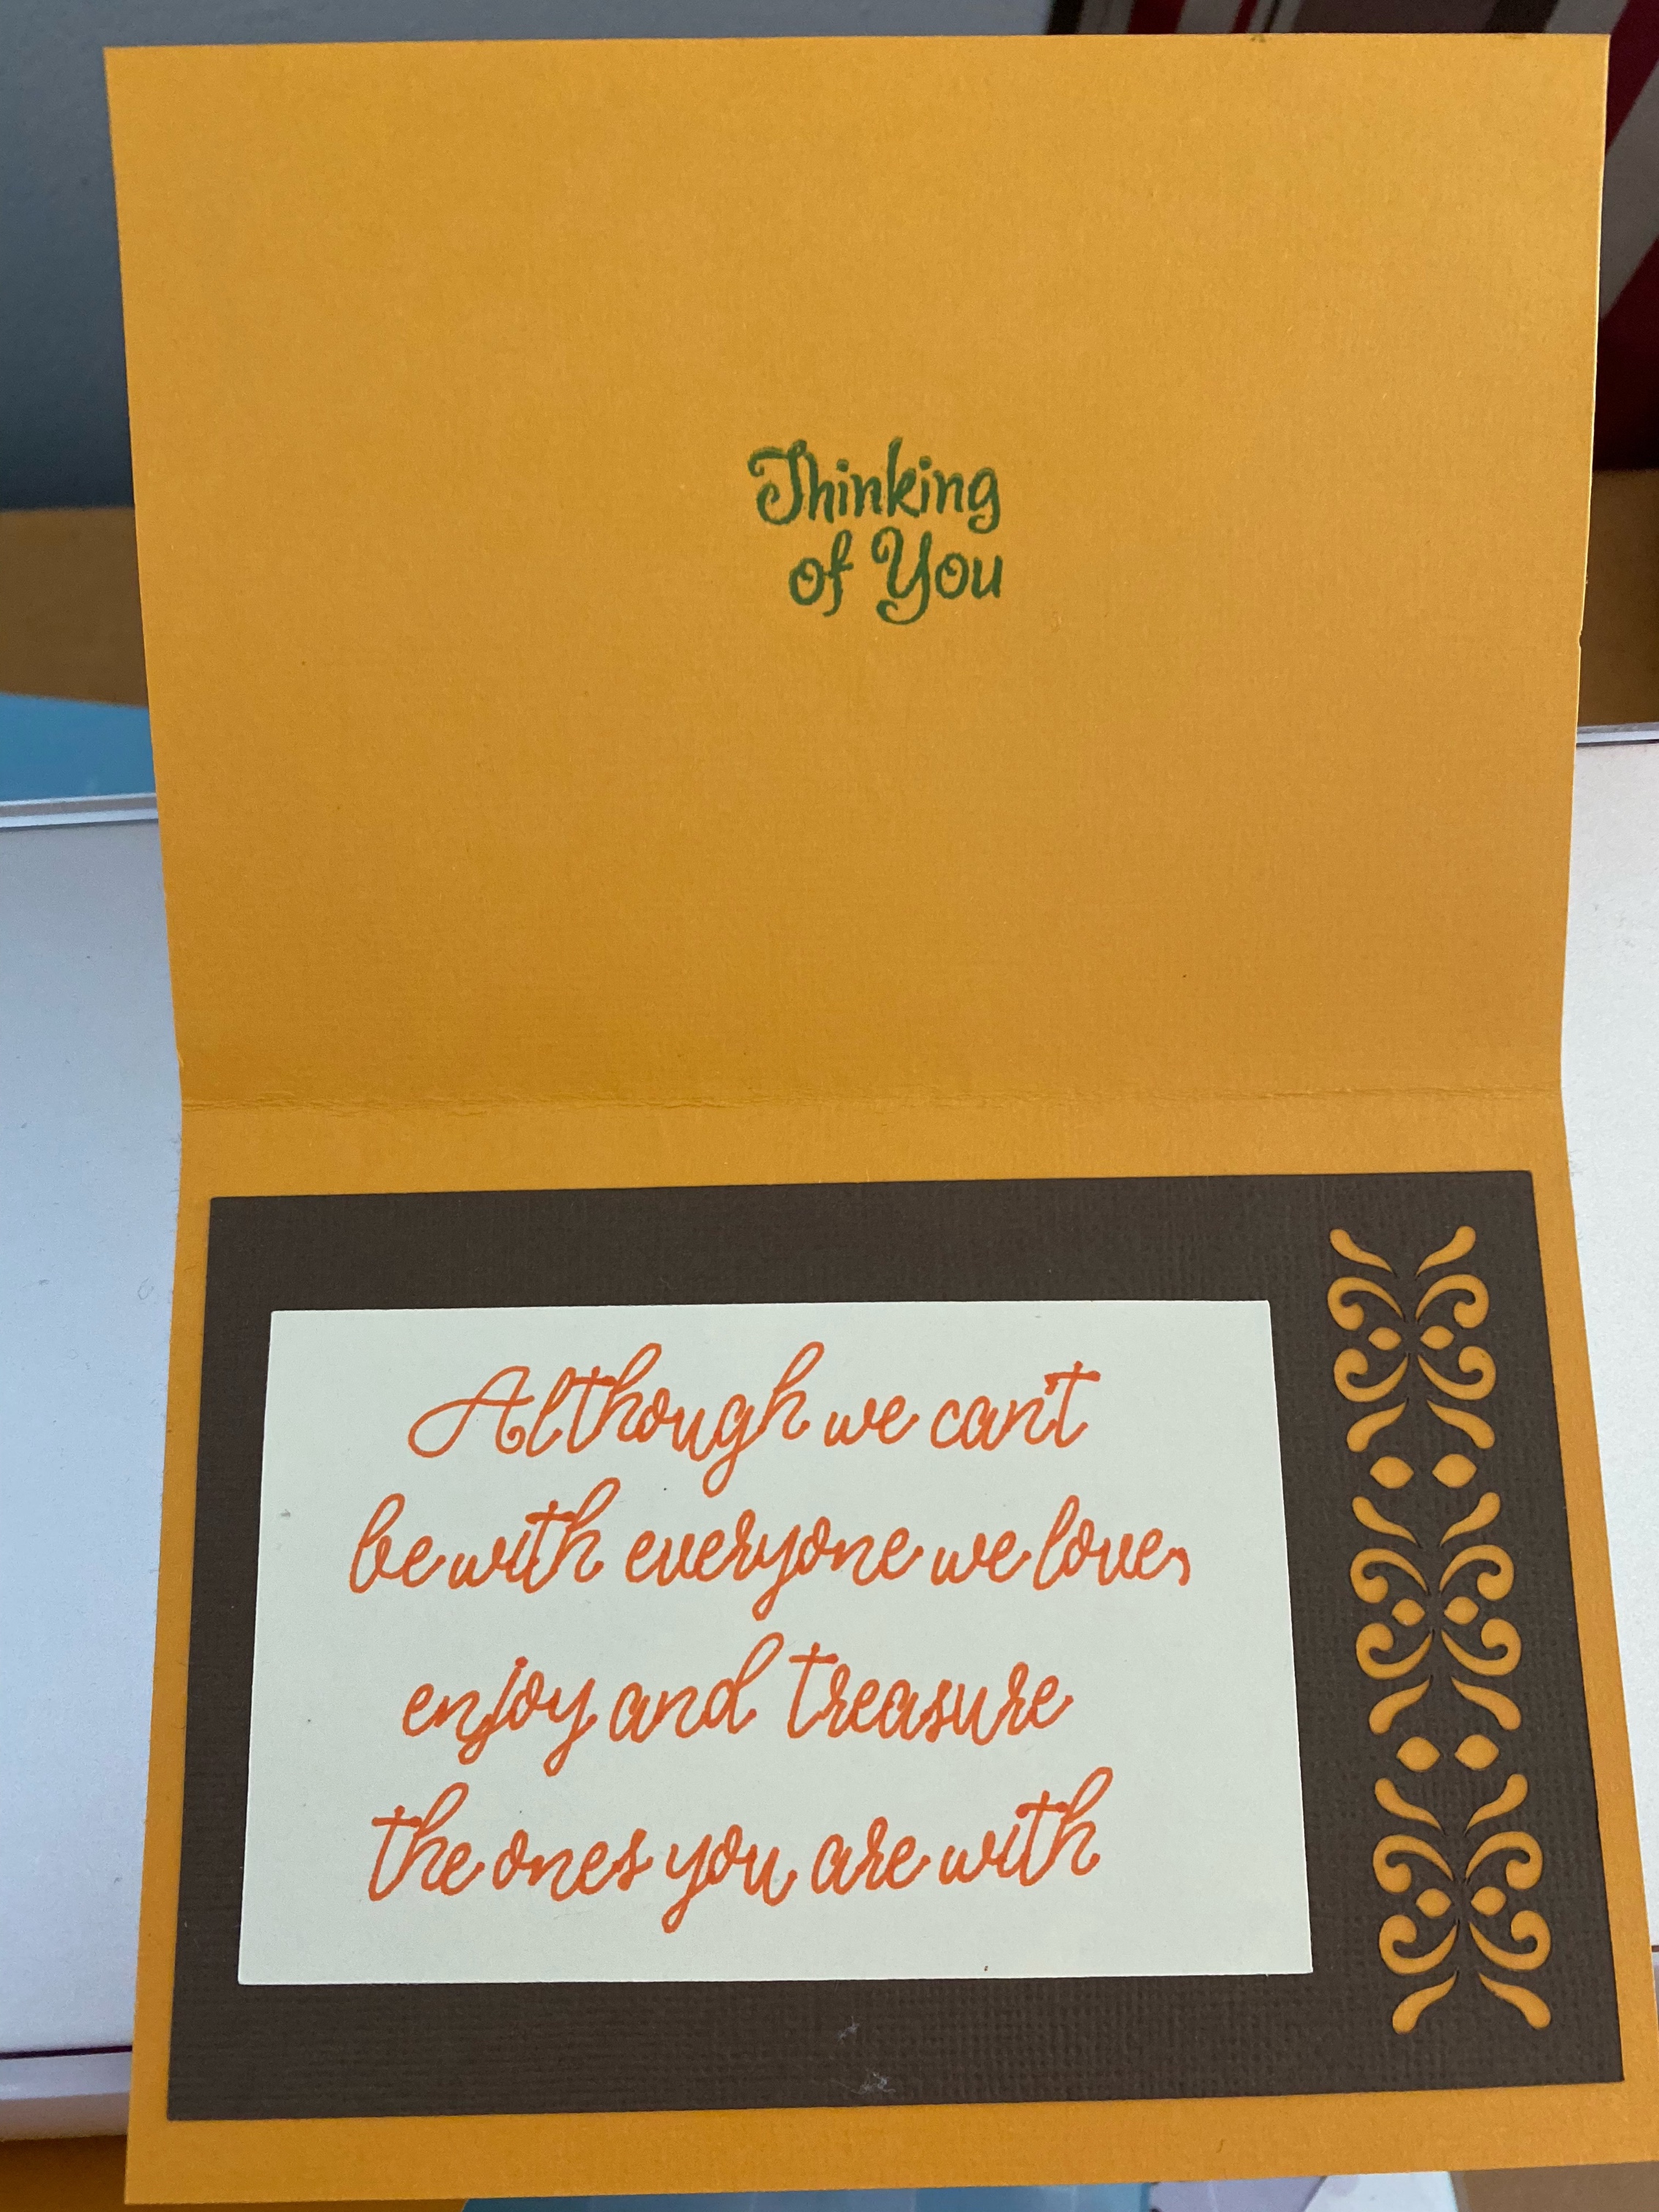 Thinking
of You
Although we can't
be with everyone we love,
enjoy and treasure
the ones you are with